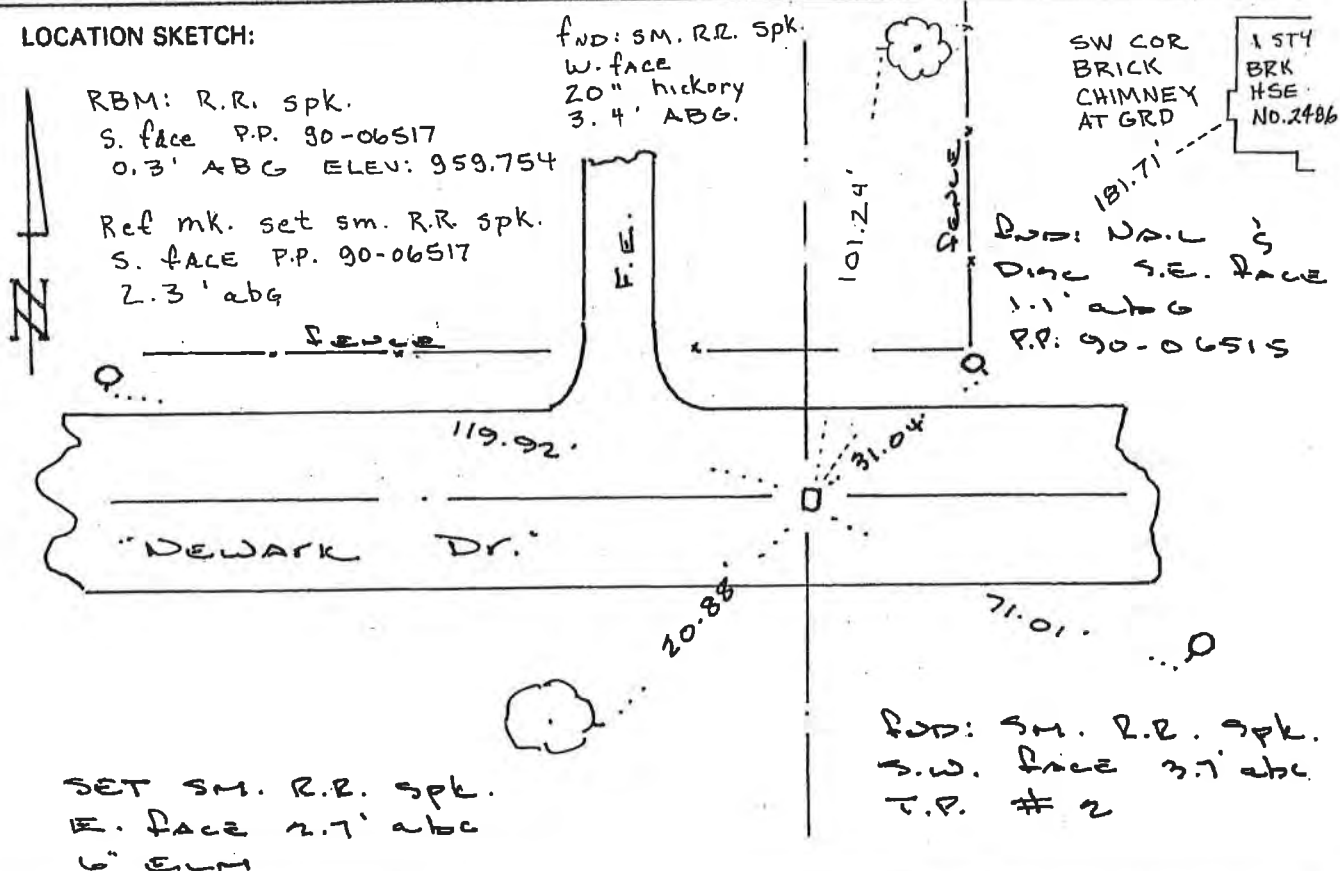 LOCATION SKETCH:
RBM: R.R. spk.
S. face P.P. 90-06517
0.3' ABG ELEV: 959.754
Ref mk. set sm. R.R spk.
S. fACE P.P. 90-06517
2.3' abG
fND: SM. R.R. Spk.
W. fACE
20" hickory
3.4' ABG.
SW COR
BRICK
CHIMNEY
AT GRD
1 STY
BRK
HSE
NO. 2486
181.71'
fND: NAIL &
DISC S.E. fACE
1.1' abG
P.P. 90-06515
F.E.
101.24'
fENCE
fENCE
119.92'
31.04'
"NEWARK Dr."
N
20.88'
71.01'
SET SM. R.R. spk.
E. fACE 2.7' abG
6" ELM
fND: SM. R.R. spk.
S.W. fACE 3.7' abG
T.P. # 2